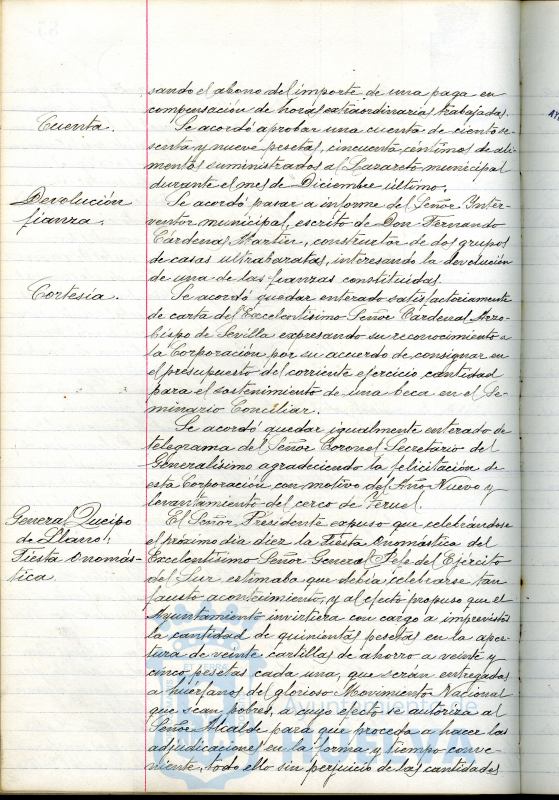 sando el abono del importe de una paga en
compensación de horas extraordinarias trabajadas.
Cuenta.
Se acordó aprobar una cuenta de ciento se-
senta y nueve pesetas, cincuenta céntimos de ali-
mentos suministrados al Lazareto municipal
durante el mes de Diciembre último.
Devolución
fianza.
Se acordó pasar a informe del Señor Inter-
ventor municipal, escrito de Don Fernando
Cárdenas Martier, constructor de dos grupos
de casas ultrabaratas, interesando la devolución
de una de las fianzas constituidas.
Cortesía.
Se acordó quedar enterado satisfactoriamente
de carta del Excelentísimo Señor Cardenal Arzo-
bispo de Sevilla expresando su reconocimiento a
la Corporación por su acuerdo de consignar en
el presupuesto del corriente ejercicio cantidad
para el sostenimiento de una beca en el Se-
minario Conciliar.
Se acordó quedar igualmente enterado de
telegrama del Señor Coronel Secretario del
Generalísimo agradeciendo la felicitación de
esta Corporación con motivo del Año Nuevo y
levantamiento del cerco de Teruel.
General Queipo
de Llano:
Fiesta onomás-
tica.
El Señor Presidente expuso que celebrándose
el próximo día diez la Fiesta Onomástica del
Excelentísimo Señor General Jefe del Ejército
del Sur estimaba que debía celebrarse tan
fausto acontecimiento, y al efecto propuso que el
Ayuntamiento invirtiera con cargo a imprevistos
la cantidad de quinientas pesetas en la aper-
tura de veinte cartillas de ahorro a veinte y
cinco pesetas cada una, que serán entregadas
a huérfanos del glorioso Movimiento Nacional
que sean pobres, a cuyo efecto se autoriza al
Señor Alcalde para que proceda a hacer las
adjudicaciones en la forma y tiempo conve-
niente, todo ello sin perjuicio de las cantidades
Ayuntamiento de